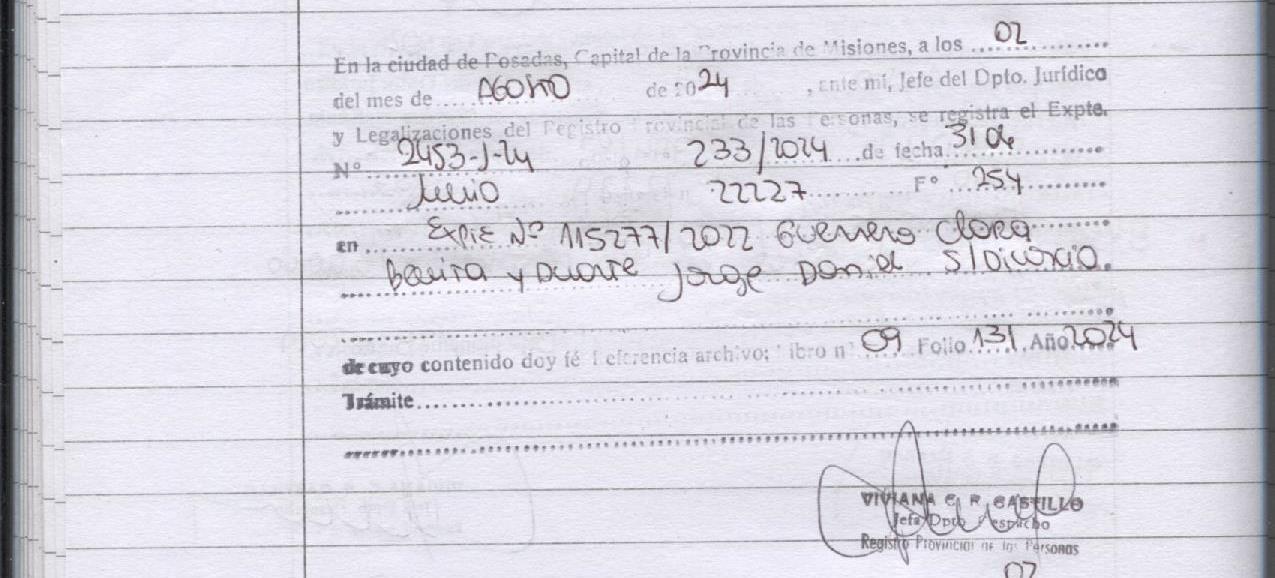 En la ciudad de Posadas, Capital de la Provincia de Misiones, a los 02
del mes de AGOSTO de 2024, ante mi, Jefe del Dpto. Jurídico
y Legalizaciones del Registro Provincial de las Personas, se registra el Expte.
Nº 2453-J-24 233/2024 de fecha 31 de
Julio 22227 Fº 254
en Expte Nº 115277/2022 Guerrero Clara
Benita y Duarte Jorge Daniel S/Divorcio.
de cuyo contenido doy fé Referencia archivo; Libro nº 09 Folio 131, Año 2024
Trámite
VIVIANA C. R. CASTILLO
Jefa Dpto Despacho
Registro Provincial de las Personas
02